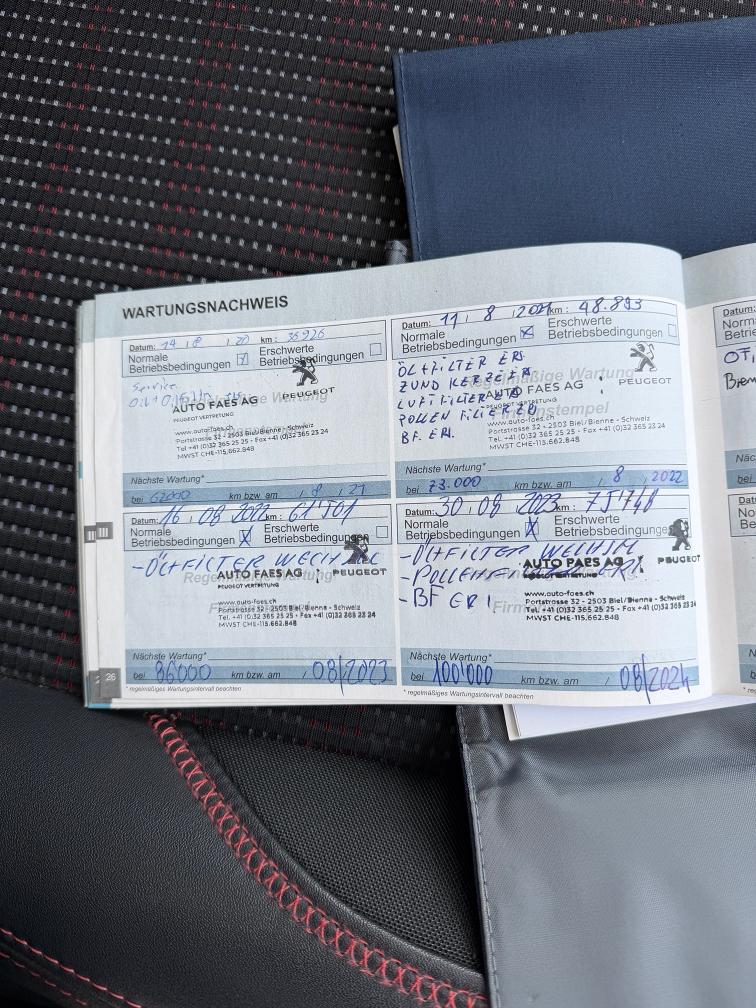 WARTUNGSNACHWEIS
Datum: 14 / 8 / 20 km: 36926
Normale Betriebsbedingungen Erschwerte Betriebsbedingungen
Service
Regelmäßige Wartung
AUTO FAES AG PEUGEOT
PEUGEOT VERTRETUNG
www.auto-faes.ch
Portstrasse 32 - 2503 Biel/Bienne - Schweiz
Tel. +41 (0)32 365 25 25 - Fax +41 (0)32 365 23 24
MWST CHE-115.662.848
Nächste Wartung*
bei 62000 km bzw. am / 8 / 21
Datum: 11 / 8 / 2021 km: 48.893
Normale Betriebsbedingungen Erschwerte Betriebsbedingungen
ÖLFILTER ERS.
ZÜNDKERZEN
LUFTFILTER
POLLENFILTER
BF. ERS.
Regelmäßige Wartung
AUTO FAES AG PEUGEOT
Firmenstempel
www.auto-faes.ch
Portstrasse 32 - 2503 Biel/Bienne - Schweiz
Tel. +41 (0)32 365 25 25 - Fax +41 (0)32 365 23 24
MWST CHE-115.662.848
Nächste Wartung*
bei 73.000 km bzw. am / 8 / 2022
Datum: 16 / 08 / 2022 km: 61'501
Normale Betriebsbedingungen Erschwerte Betriebsbedingungen
- ÖLFILTER WECHSEL
AUTO FAES AG PEUGEOT
PEUGEOT VERTRETUNG
www.auto-faes.ch
Portstrasse 32 - 2503 Biel/Bienne - Schweiz
Tel. +41 (0)32 365 25 25 - Fax +41 (0)32 365 23 24
MWST CHE-115.662.848
Nächste Wartung*
bei 86000 km bzw. am / 08/2023
Datum: 30 / 08 / 2023 km: 75'740
Normale Betriebsbedingungen Erschwerte Betriebsbedingungen
- ÖLFILTER WECHSEL
- POLLEN
- BF ERS
AUTO FAES AG PEUGEOT
PEUGEOT VERTRETUNG
www.auto-faes.ch
Portstrasse 32 - 2503 Biel/Bienne - Schweiz
Tel. +41 (0)32 365 25 25 - Fax +41 (0)32 365 23 24
MWST CHE-115.662.848
Nächste Wartung*
bei 100'000 km bzw. am / 08/2024
26
* regelmäßiges Wartungsintervall beachten
* regelmäßiges Wartungsintervall beachten